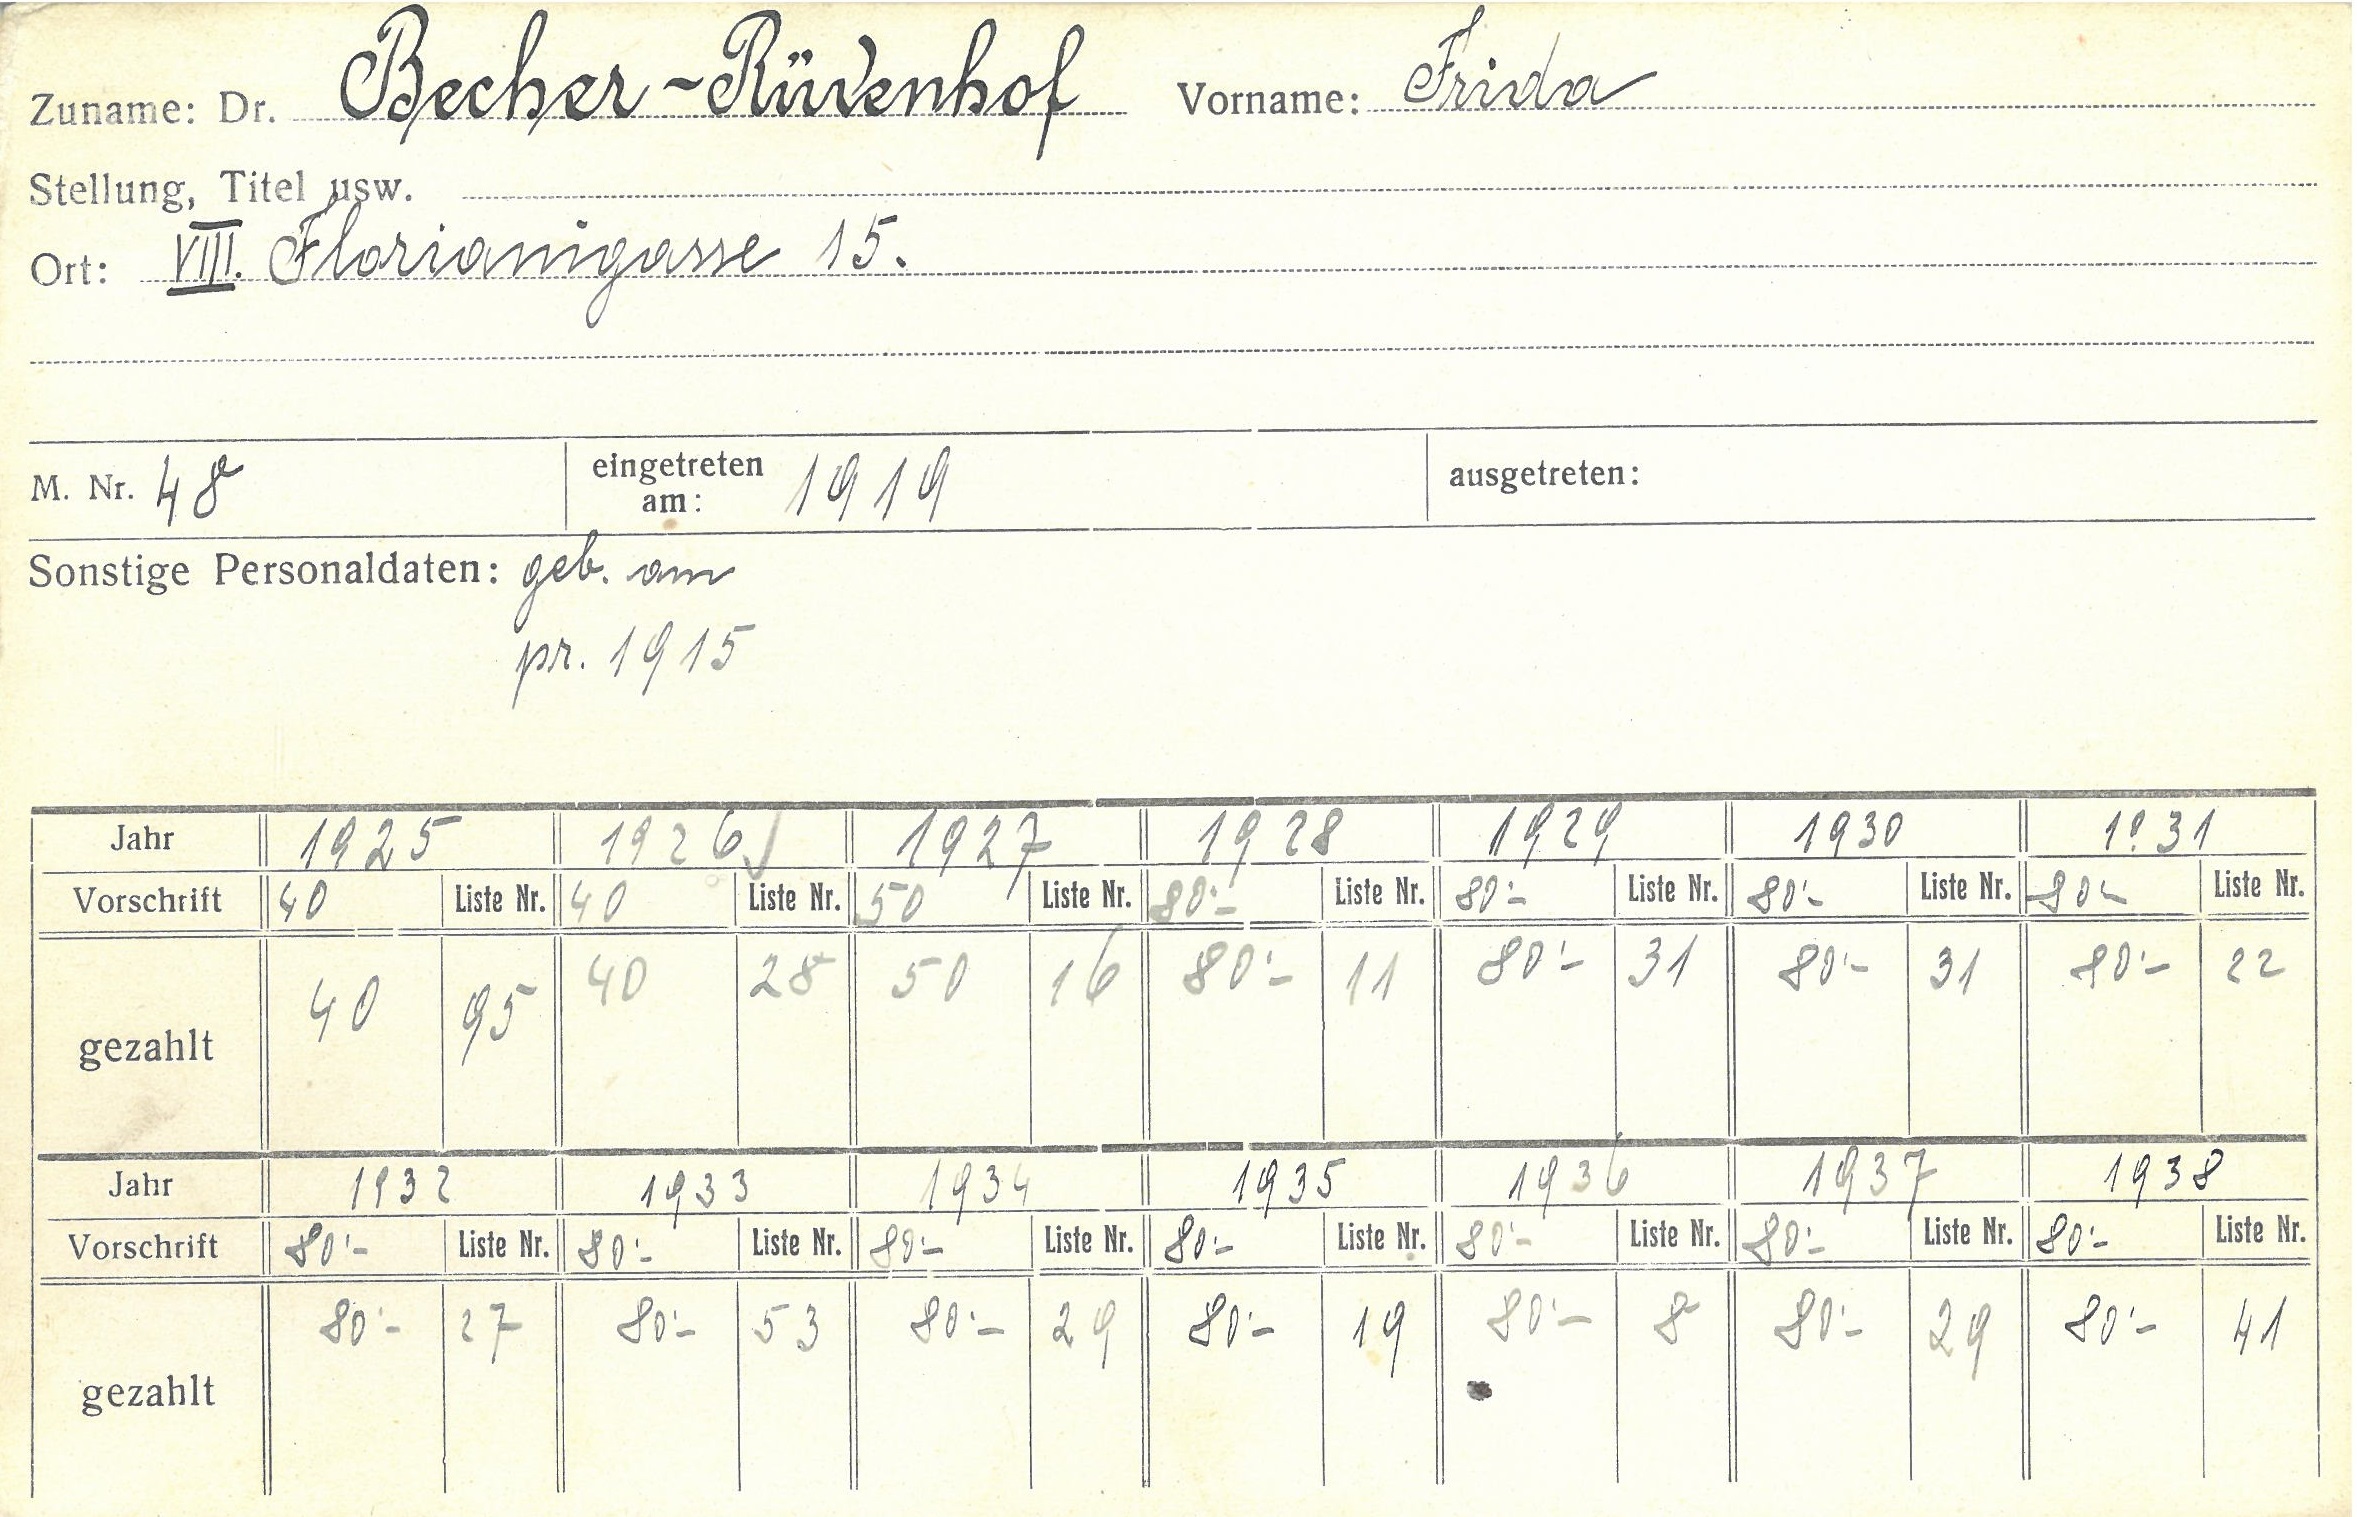 Zuname: Dr. Becher-Rüvenhof Vorname: Frida
Stellung, Titel usw.
Ort: VIII. Florianigasse 15.
M. Nr. 48 eingetreten am: 1919 ausgetreten:
Sonstige Personaldaten: geb. am
pr. 1915
Jahr 1925 1926 1927 1928 1929 1930 1931
Vorschrift 40 Liste Nr. 40 Liste Nr. 50 Liste Nr. 80'- Liste Nr. 80'- Liste Nr. 80'- Liste Nr. 80'- Liste Nr.
gezahlt 40 95 40 28 50 16 80'- 11 80'- 31 80'- 31 80'- 22
Jahr 1932 1933 1934 1935 1936 1937 1938
Vorschrift 80'- Liste Nr. 80'- Liste Nr. 80'- Liste Nr. 80'- Liste Nr. 80'- Liste Nr. 80'- Liste Nr. 80'- Liste Nr.
gezahlt 80'- 27 80'- 53 80'- 29 80'- 19 80'- 8 80'- 29 80'- 41